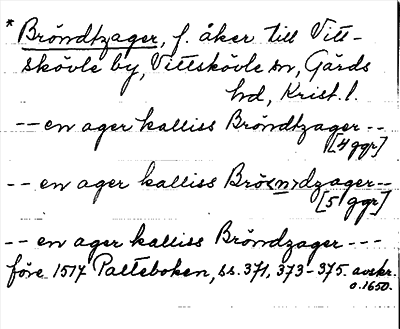 * Bröndtzager, f. åker till Vitt-
skövle by, Vittskövle sn, Gärds
hd, Krist. l.
-- en ager kalliss Bröndtzager --
[4 ggr]
-- en ager kalliss Brö<n>dzager --
[5 ggr]
-- en ager kalliss Bröndzager ---
före 1514 Palteboken, ss. 371, 373-375. avskr.
o. 1650.